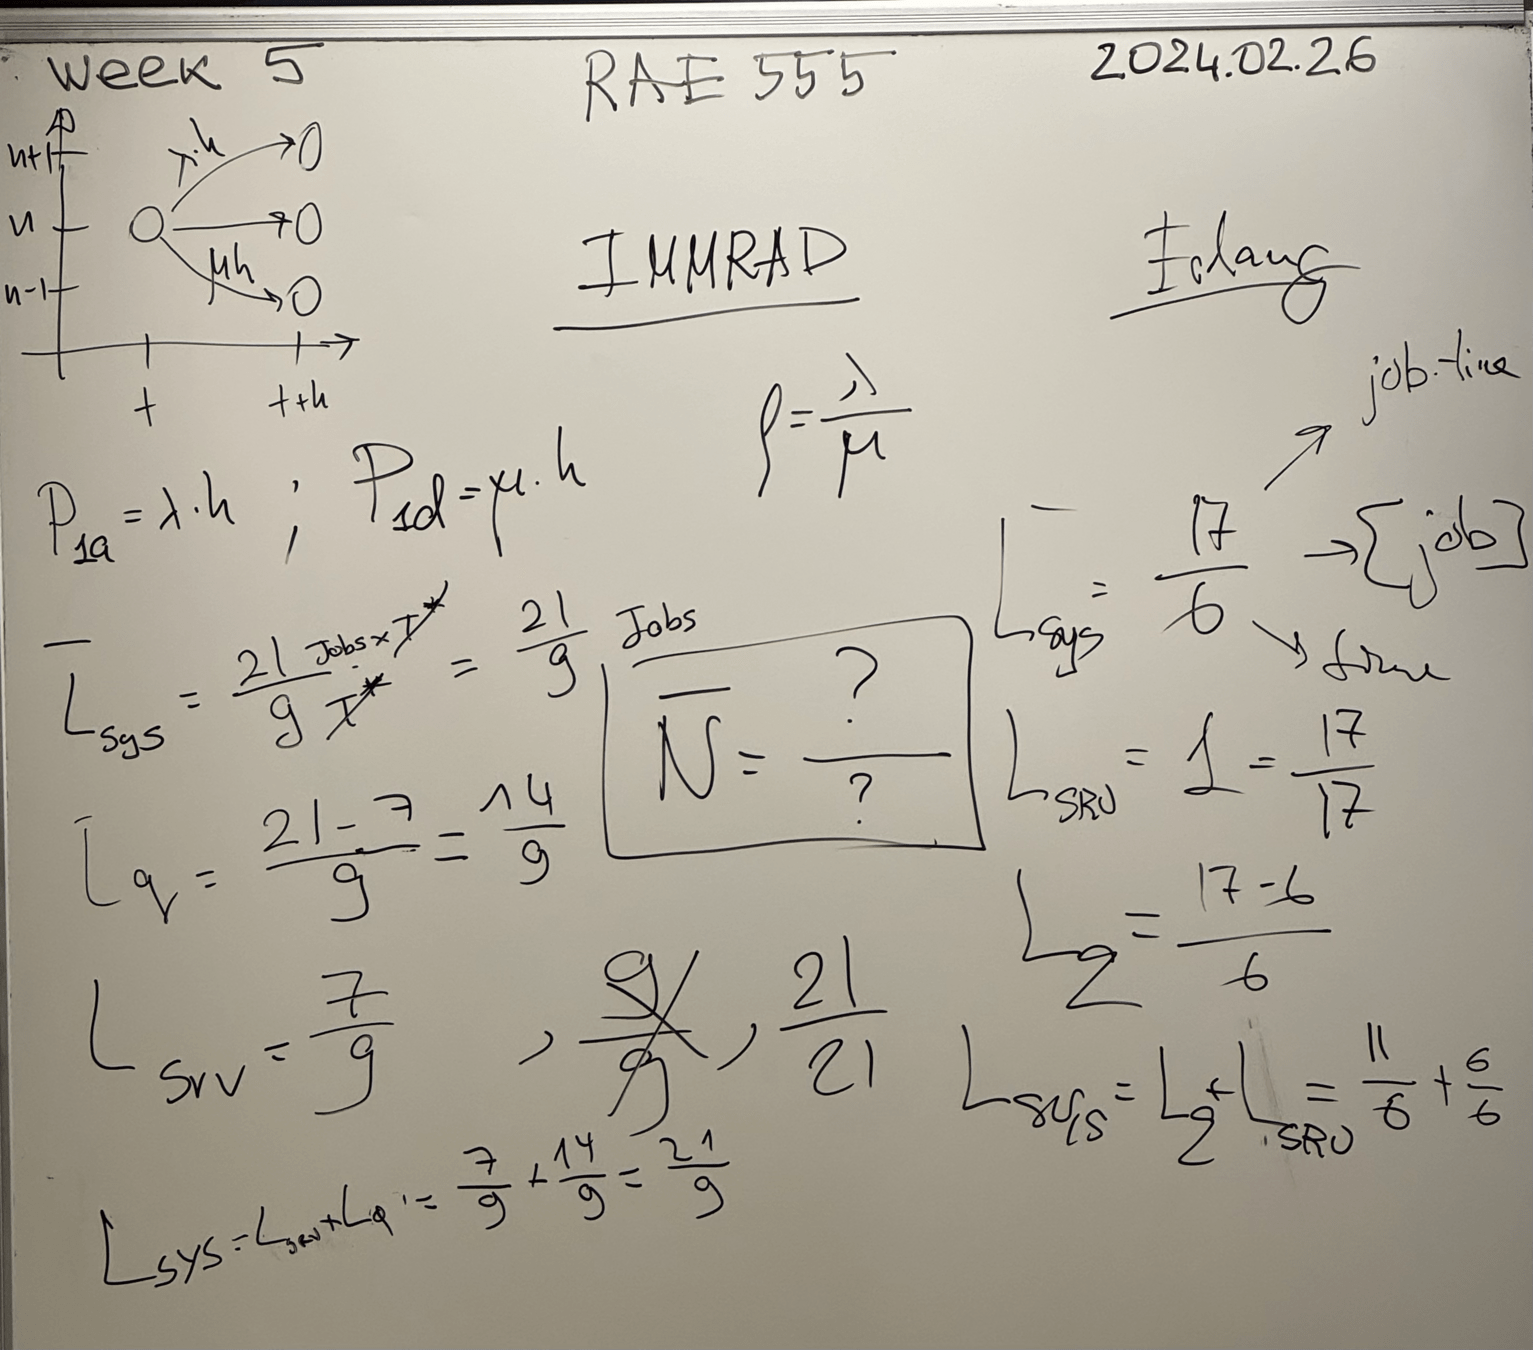 week 5
RAE 555
2024.02.26
n+1
n
n-1
λ·h
μh
t
t+h
IMMRAD
Erlang
ρ = λ/μ
P1a = λ·h ; P1d = μ·h
L̄sys = 21 Jobs×T* / 9 T* = 21/9 Jobs
L̄q = (21-7)/9 = 14/9
Lsrv = 7/9 , 9/9 , 21/21
Lsys = Lsrv + Lq = 7/9 + 14/9 = 21/9
N̄ = ?/?
L̄sys = 17/6
job·time
→ [job]
time
LSRV = 1 = 17/17
Lq = (17-6)/6
Lsys = Lq + LSRV = 11/6 + 6/6